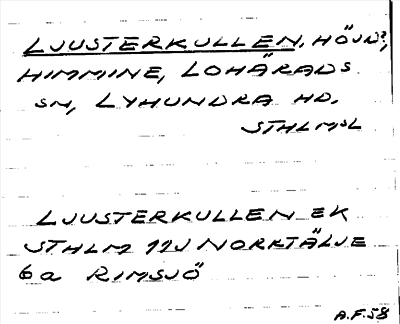 LJUSTERKULLEN, HÖJD?,
HIMMINE, LOHÄRADS
SN, LYHUNDRA HD.
STHLMSL
LJUSTERKULLEN EK
STHLM 11J NORRTÄLJE
6a RIMSJÖ
A.F. 58